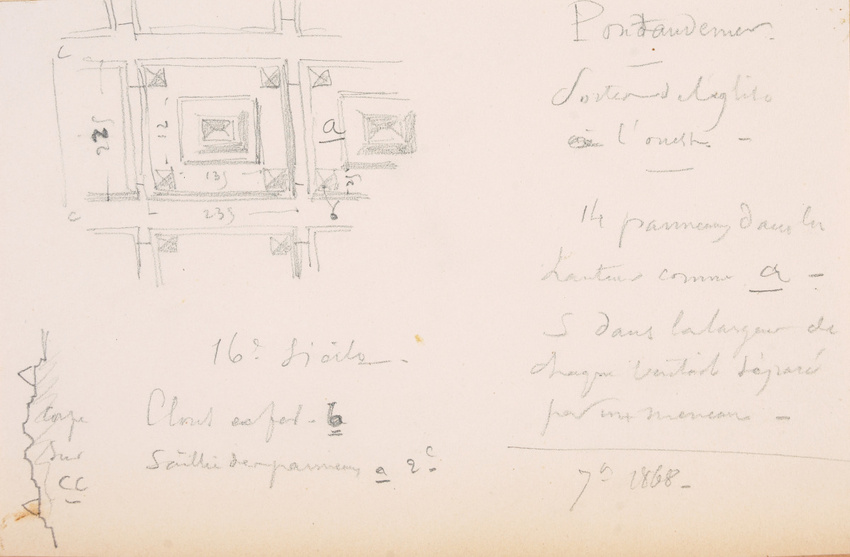 Pontaudemer.
Porte de l'église
à l'ouest. -
14 panneaux dans la
hauteur comme a -
5 dans la largeur de
chaque vantail séparé
par un meneau -
7bre 1868-
C
225
12
135
235
a
25
b
C
16e siècle.
Clous en fer - b
Saillie des panneaux a 2c
Coupe
sur
CC